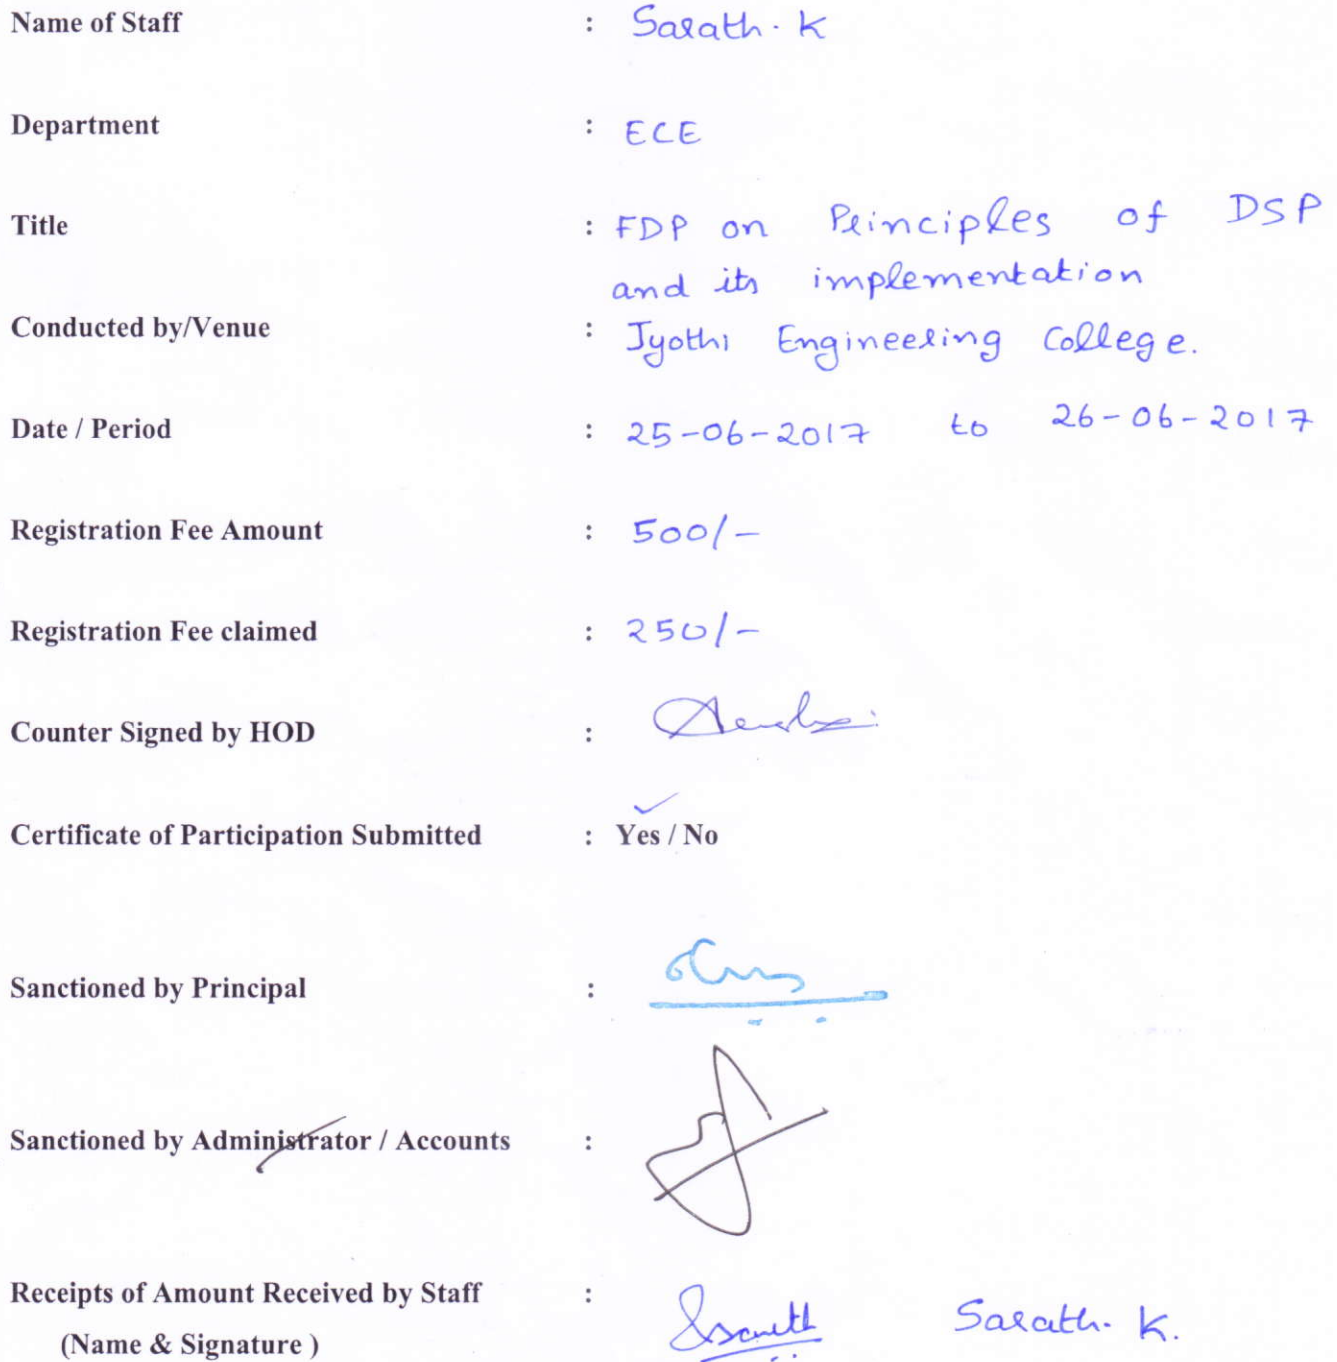 Name of Staff : Sarath. K
Department : ECE
Title : FDP on Principles of DSP
and its implementation
Conducted by/Venue : Jyothi Engineering College.
Date / Period : 25-06-2017 to 26-06-2017
Registration Fee Amount : 500/-
Registration Fee claimed : 250/-
Counter Signed by HOD :
Certificate of Participation Submitted : Yes / No
Sanctioned by Principal :
Sanctioned by Administrator / Accounts :
Receipts of Amount Received by Staff : Sarath. K.
(Name & Signature )